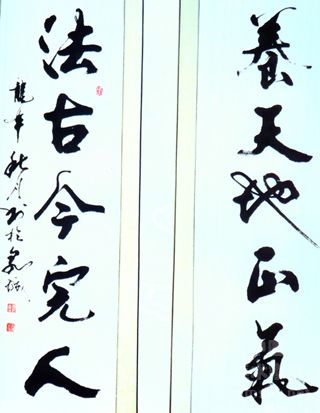 養天地正氣
法古今完人
龍年秋月书於